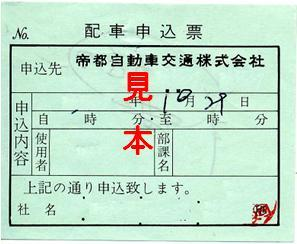 No. 配車申込票
申込先 帝都自動車交通株式会社
申込内容
年 10月29日
自 時 分・至 時 分
使用者 部課名
見本
上記の通り申込致します。
社名